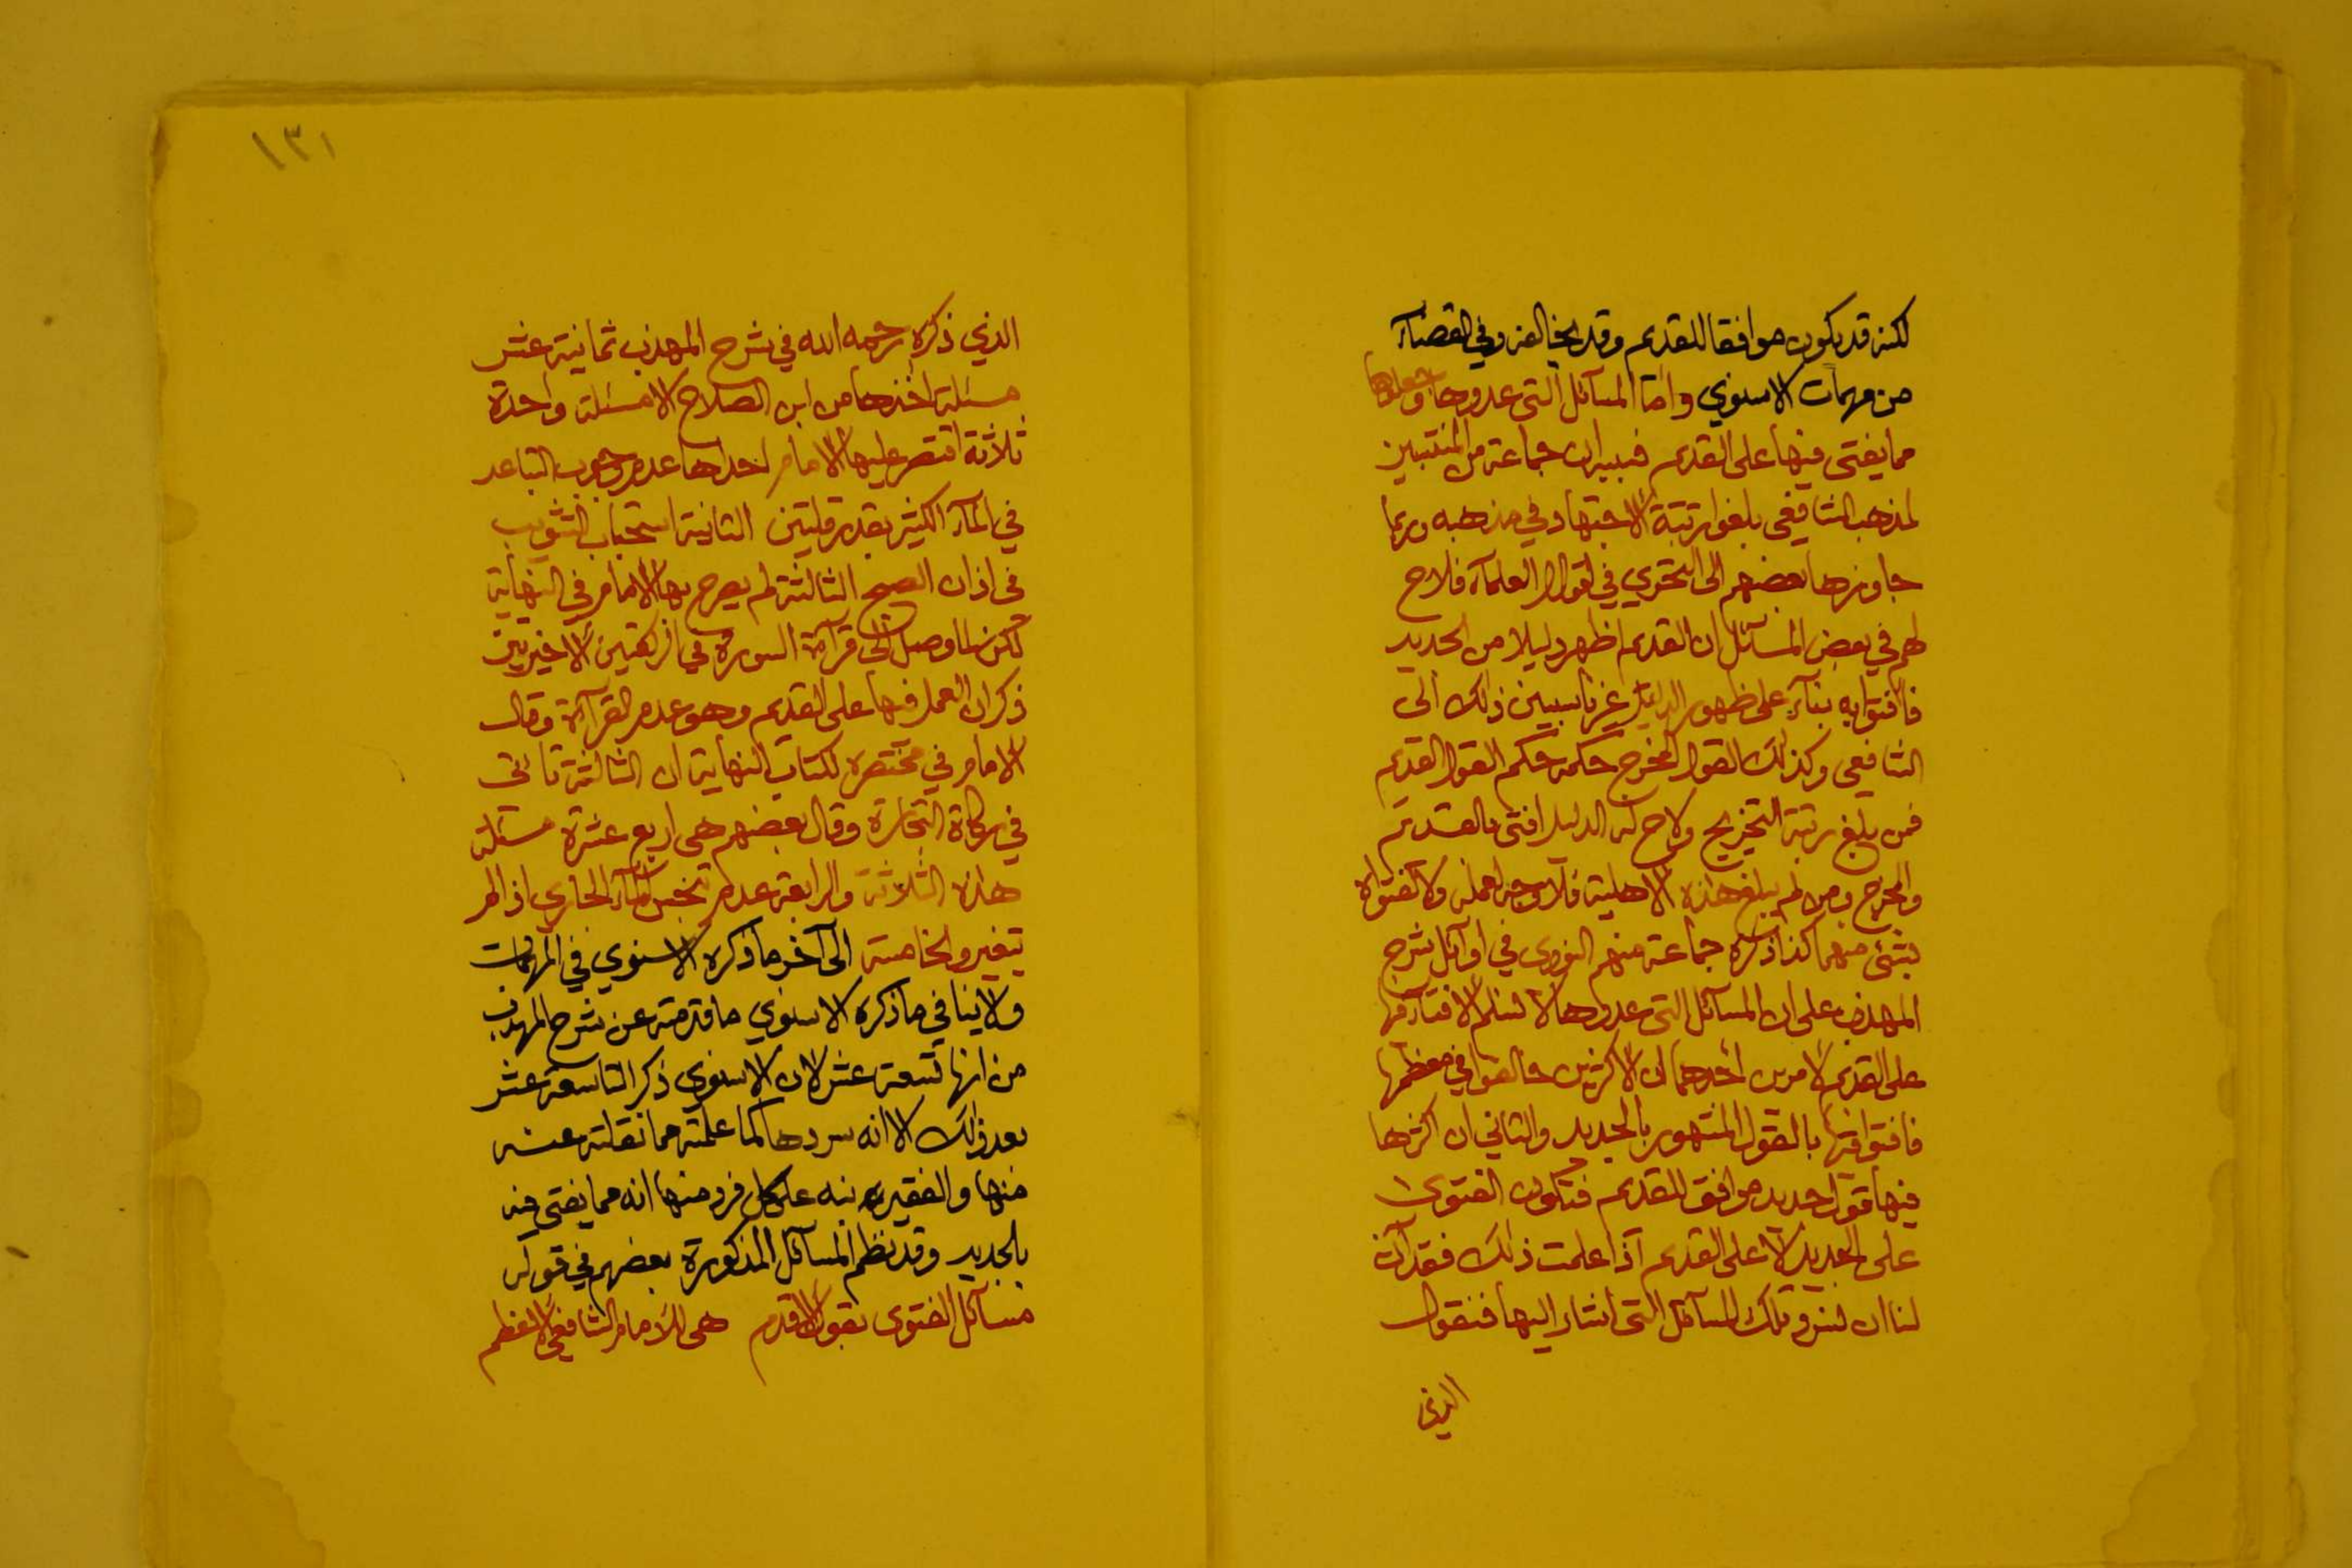 لكنه قد يكون موافقا للقديم وقد يخالفه وفي القضاء
من مهمات الاسنوي واما المسائل التي عدوها وجعلوها
مما يفتى فيها على القديم فسببه ان جماعة من المنتسبين
لمذهب الشافعي بلغوا رتبة الاجتهاد في مذهبه وربما
جاوزها بعضهم الى التحري في اقوال العلماء فلاح
لهم في بعض المسائل ان القديم اظهر دليلا من الجديد
فافتوا به بناء على ظهور الدليل غير ناسبين ذلك الى
الشافعي وكذلك القول المخرج حكمه حكم القول القديم
فمن بلغ رتبة التخريج ولاح له الدليل افتى بالقديم
والمخرج ومن لم يبلغ هذه الاهلية فلا وجه لعمله ولا لفتواه
بشئ منهما كذا ذكره جماعة منهم النووي في اوائل شرح
المهذب على ان المسائل التي عدوها لا نسلم الافتاء فيها
على القديم لامرين احدهما ان الاكثرين خالفوا في معظمها
فافتوا فيها بالقول المشهور بالجديد والثاني ان اكثرها
فيها قول جديد موافق للقديم فتكون الفتوى
على الجديد لا على القديم اذا علمت ذلك فقد آن
لنا ان نسرد تلك المسائل التي اشار اليها فنقول
الذي
١٣١
الذي ذكره رحمه الله في شرح المهذب ثمانية عشر
مسئلة اخذها من ابن الصلاح الا مسئلة واحدة
ثلاثة اقتصر عليها الامام احداها عدم وجوب التباعد
في الماء الكثير بقدر قلتين الثانية استحباب التثويب
في اذان الصبح الثالثة لم يصرح بها الامام في النهاية
لكن لما وصل الى قراءة السورة في الركعتين الاخيرتين
ذكر ان العمل فيها على القديم وهو عدم القراءة وقال
الامام في مختصره لكتاب النهاية ان الثالثة تاتى
في زكاة التجارة وقال بعضهم هى اربع عشرة مسئلة
هذه الثلاثة والرابعة عدم تنجس الماء الجاري اذا لم
يتغير والخامسة الى آخر ما ذكره الاسنوي في المهمات
ولا ينافي ما ذكره الاسنوي ما قدمته عن شرح المهذب
من انها تسعة عشر لان الاسنوي ذكر التاسعة عشر
بعد ذلك الا انه سردها كما علمته مما نقلته عنه
منها والفقير نبه على كل فرد منها انه مما يفتى فيه
بالجديد وقد نظم المسائل المذكورة بعضهم في قوله
مسائل الفتوى بقول الاقدم هى للامام الشافعي الاعظم